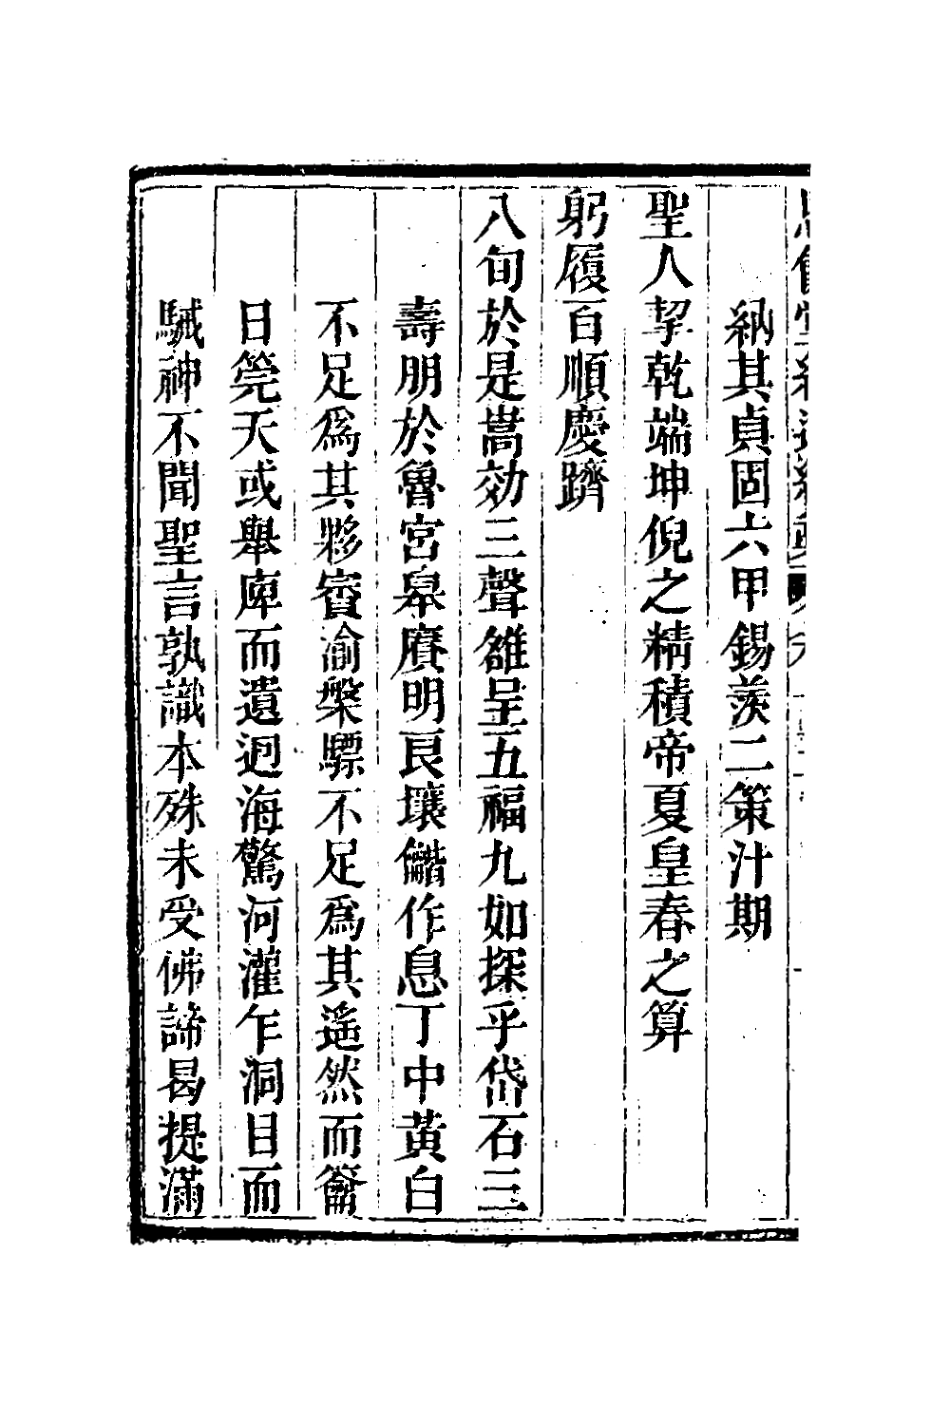 納其貞固六甲錫羨二策汁期
聖人挈乾端坤倪之精積帝夏皇春之算
躬履百順慶躋
八旬於是嵩効三聲雒呈五福九如探乎岱石三
壽朋於魯宮皋賡明良壤僭作息丁中黃白
不足爲其夥賨渝槃驃不足爲其遥然而籥
日筦天或舉庳而遺迥海驚河灌乍洞目而
駴神不聞聖言孰識本殊未受佛諦曷提滿